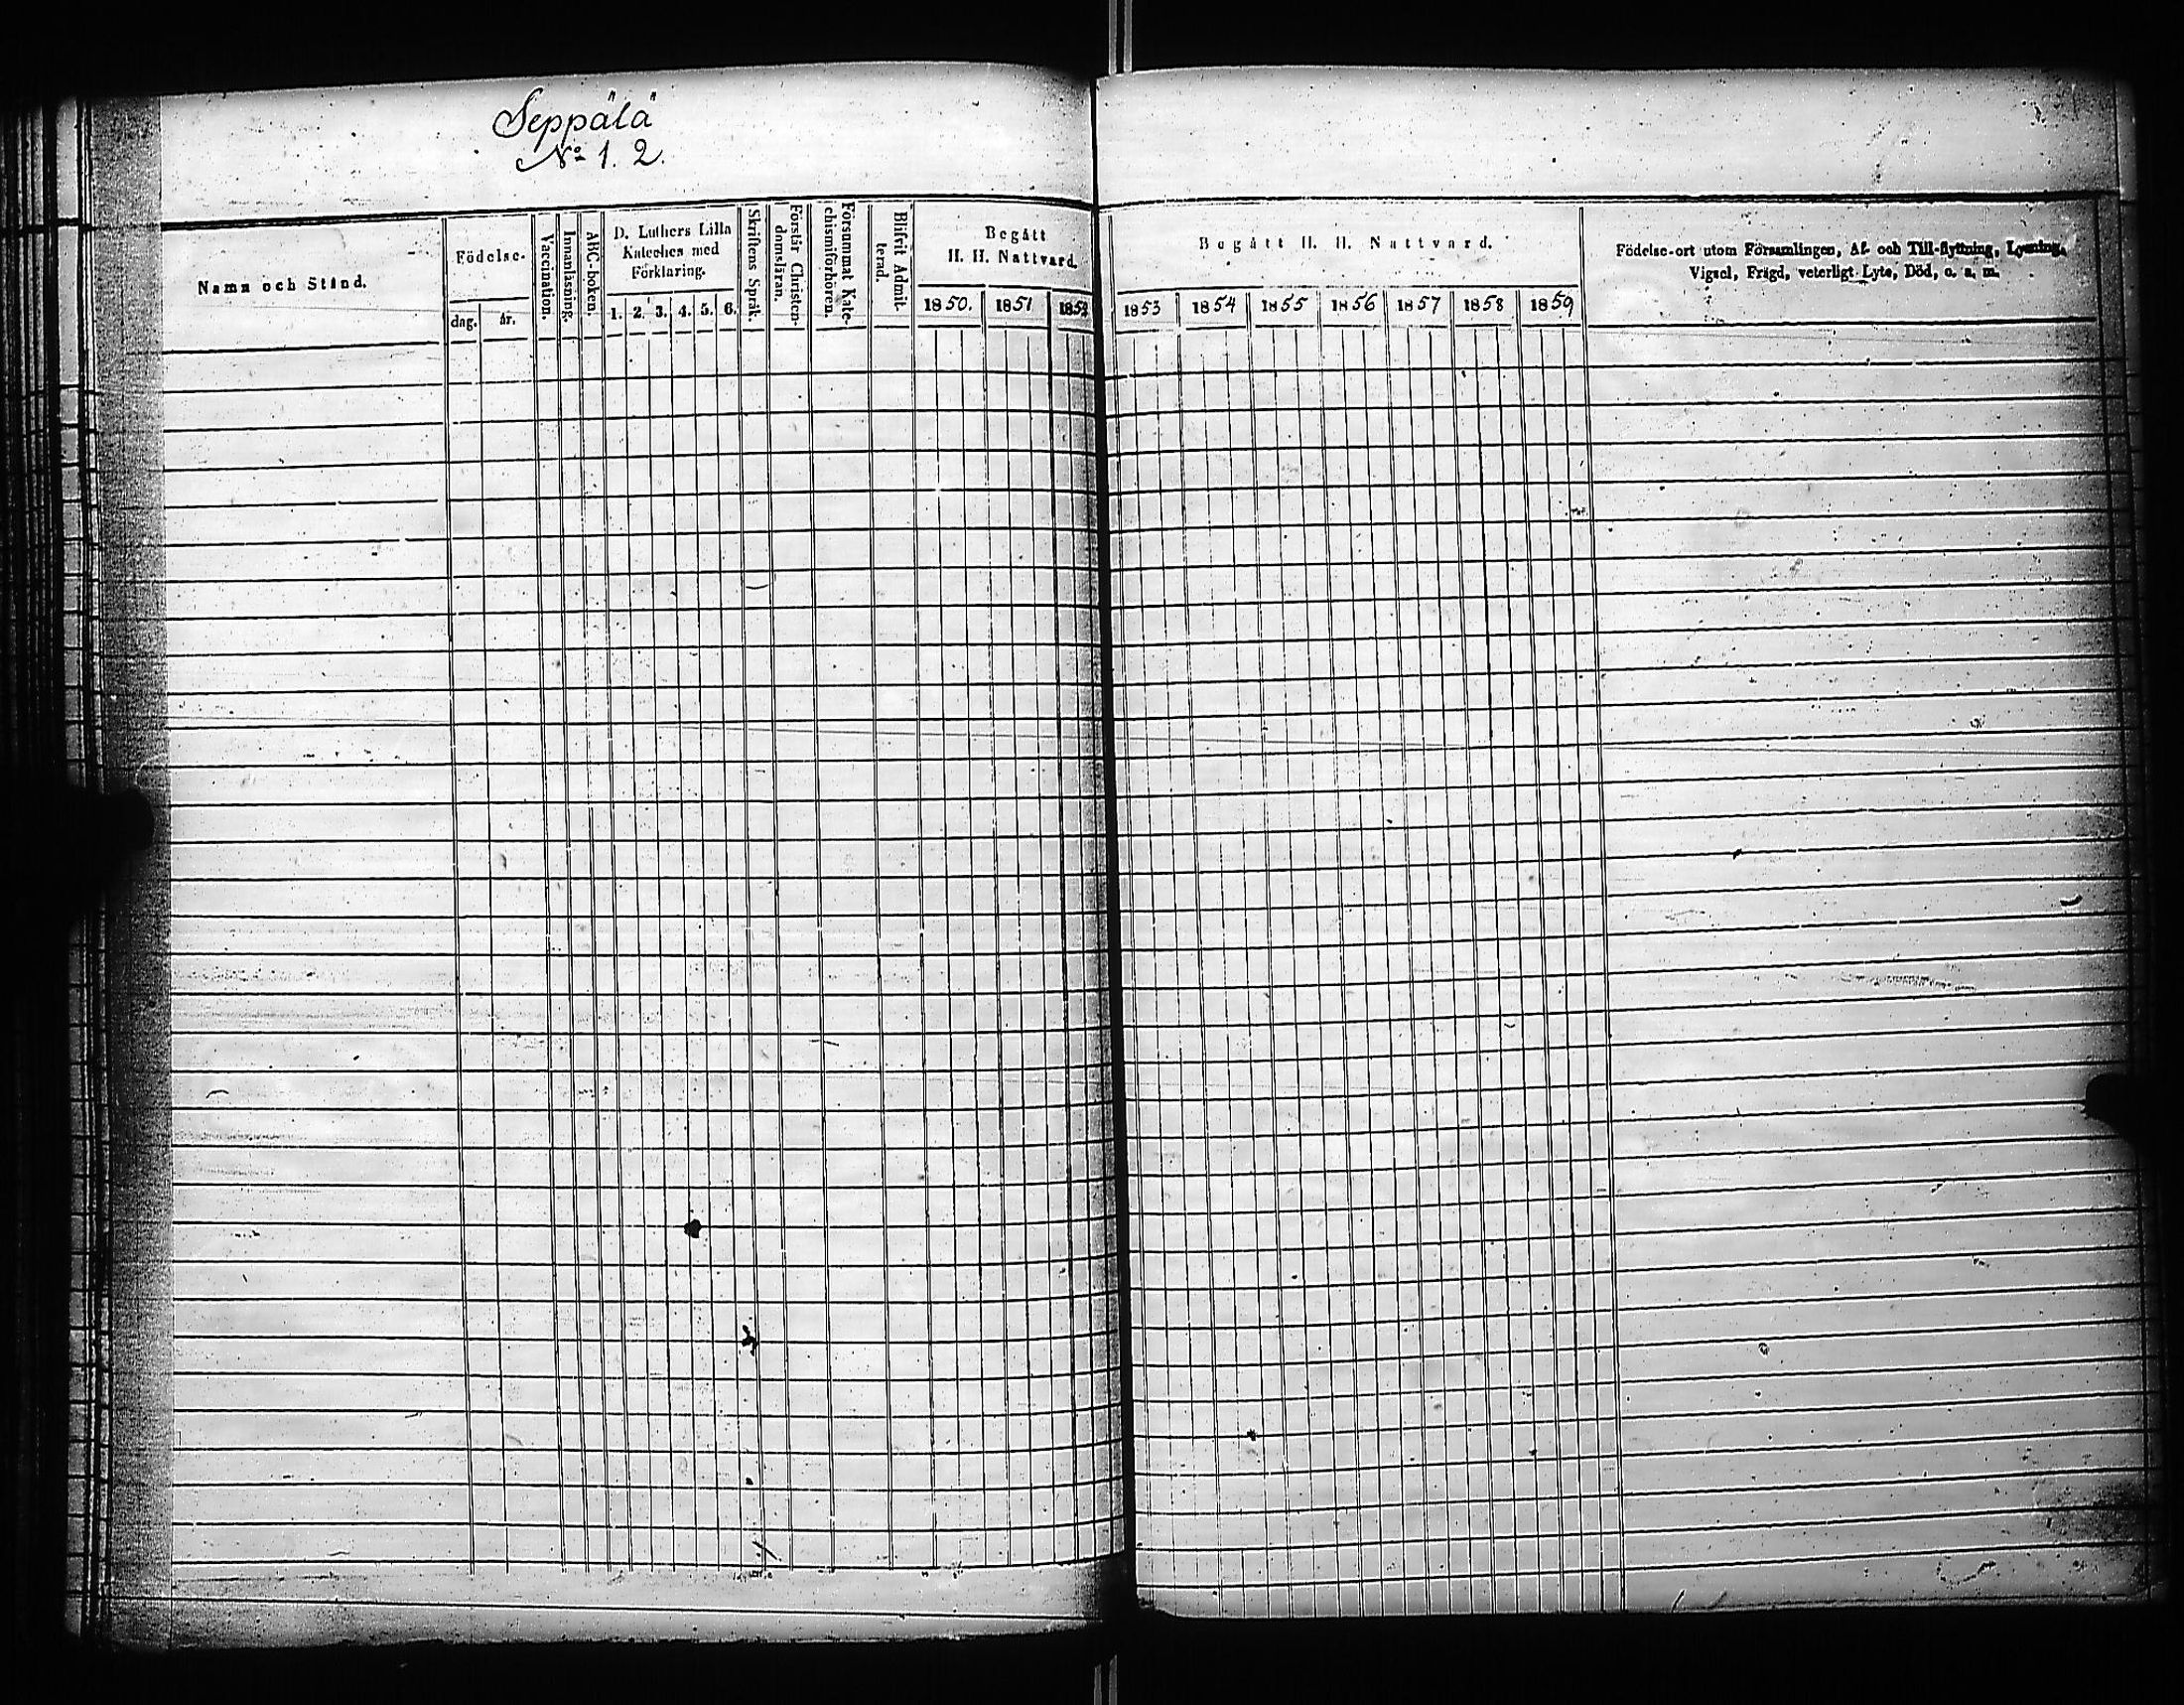 Seppälä
No 1. 2.
Namn och Stånd.
Födelse-
dag.
år.
Vaccination.
Innanläsning.
ABC-boken.
D. Luthers Lilla
Kateches med
Förklaring.
1. 2. 3. 4. 5. 6.
Skriftens Språk.
Förstår Christen-
domsläran.
Försummat Kate-
chismiförhören.
Blifvit Admit-
terad.
Begått
H. H. Nattvard.
1850. 1851 1852
Begått H. H. Nattvard.
1853 1854 1855 1856 1857 1858 1859
Födelse-ort utom Församlingen, Af- och Till-flyttning, Lysning,
Vigsel, Frägd, veterligt Lyte, Död, o. s. m.